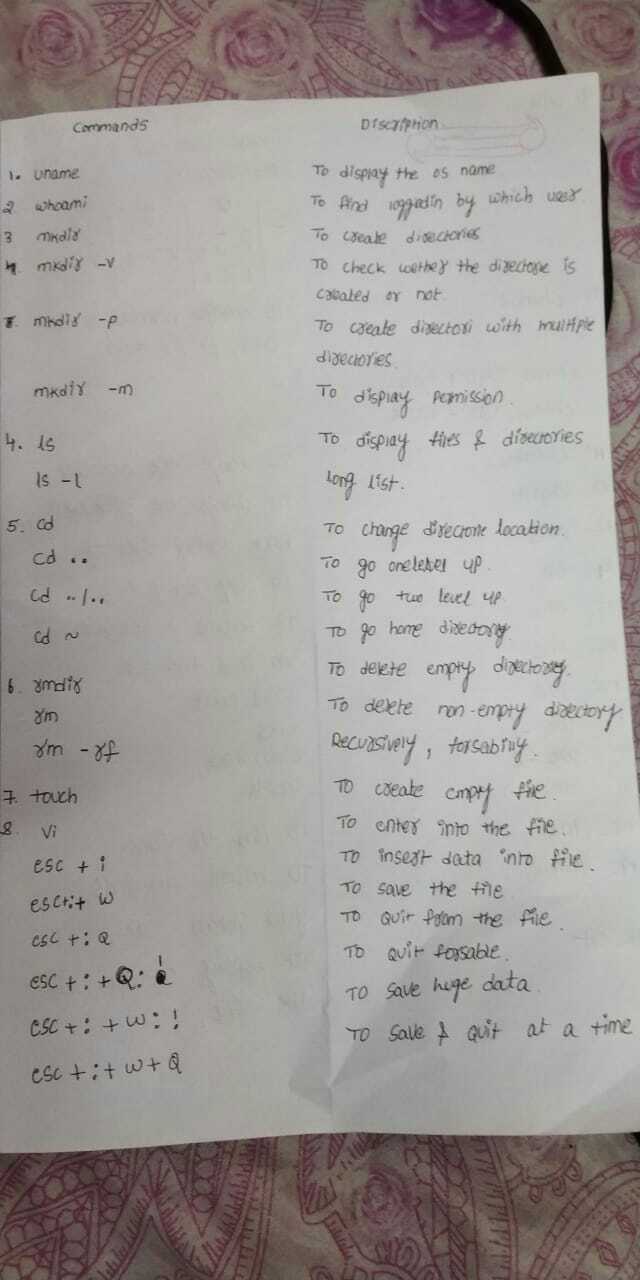 Commands Discription
1. uname To display the os name
2 whoami To find loggedin by which user.
3 mkdir To create directories
4. mkdir -v To check wether the directorie is
created or not.
mkdir -p To create directori with multiple
directories.
mkdir -m To display permission.
4. ls To display files & directories
ls -l long list.
5. cd To change directorie location.
cd .. To go onelevel up.
cd ../.. To go two level up.
cd ~ To go home directory
6. rmdir To delete empty directory.
rm To delete non-empty directory
rm -rf Recursively, forsabily.
7. touch To create empty file.
8. vi To enter into the file.
esc + i To insert data into file.
esc+:+ w To save the file
esc +: Q To Quit from the file.
esc +: +Q: ! To Quit forsable.
esc +: +w: ! To save huge data.
esc +:+ w+Q To save & Quit at a time